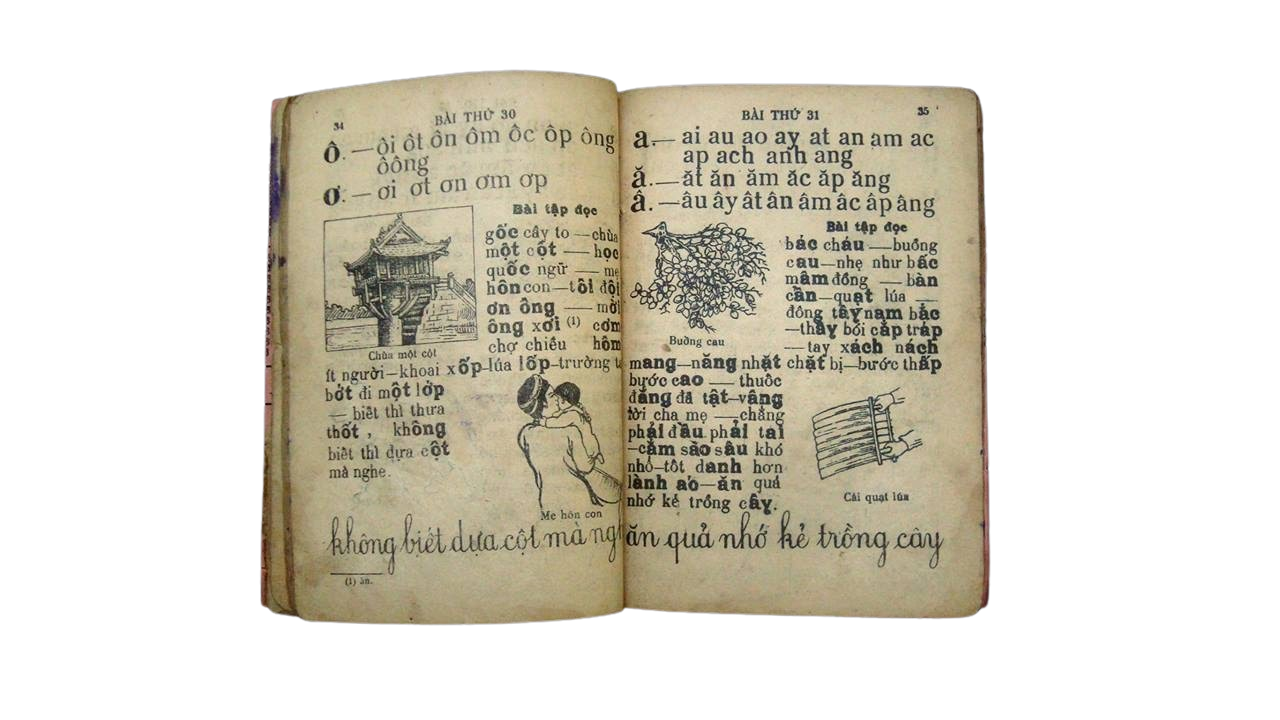 34
BÀI THỨ 30
Ô. — ôi ôt ôn ôm ôc ôp ông
ôông
ơ. — ơi ơt ơn ơm ơp
Bài tập đọc
gốc cây to — chùa
một cột — học
quốc ngữ — mẹ
hôn con — tôi đội
ơn ông — mời
ông xơi (1) cơm
chợ chiều hôm
Chùa một cột
ít người — khoai xốp — lúa lốp — trường
bớt đi một lớp
— biết thì thưa
thốt, không
biết thì dựa cột
mà nghe.
Mẹ hôn con
không biết dựa cột mà
(1) ăn.
BÀI THỨ 31
35
a. — ai au ao ay at an am ac
ap ach anh ang
ă. — ăt ăn ăm ăc ăp ăng
â. — âu ây ât ân âm âc âp âng
Bài tập đọc
bác cháu — buồng
cau — nhẹ như bấc
mâm đồng — bàn
cân — quạt lúa —
đông tây nam bắc
— thầy bói cắp tráp
— tay xách nách
Buồng cau
mang — nặng nhặt chặt bị — bước thấp
bước cao — thuốc
đắng đã tật — vâng
lời cha mẹ — chẳng
phải đầu phải tai
— cầm sào sâu khó
nhổ — tốt danh hơn
lành áo — ăn quả
nhớ kẻ trồng cây.
Cái quạt lúa
ăn quả nhớ kẻ trồng cây